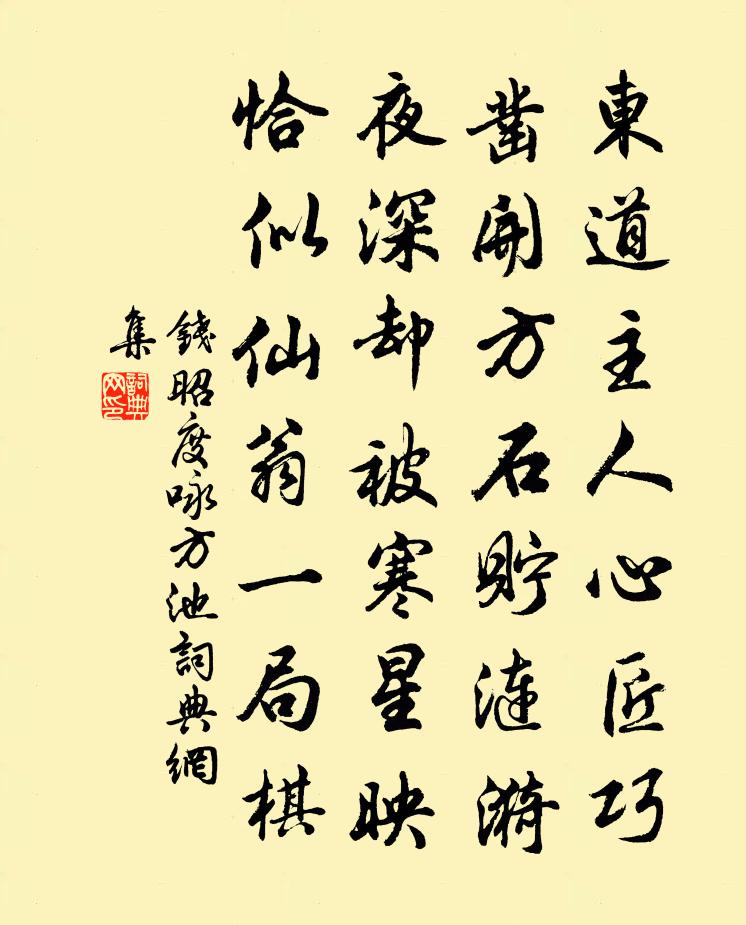 東道主人心匠巧
鑿開方石貯漣漪
夜深却被寒星映
恰似仙翁一局棋
錢昭度咏方池詞典網
集
詞典網印